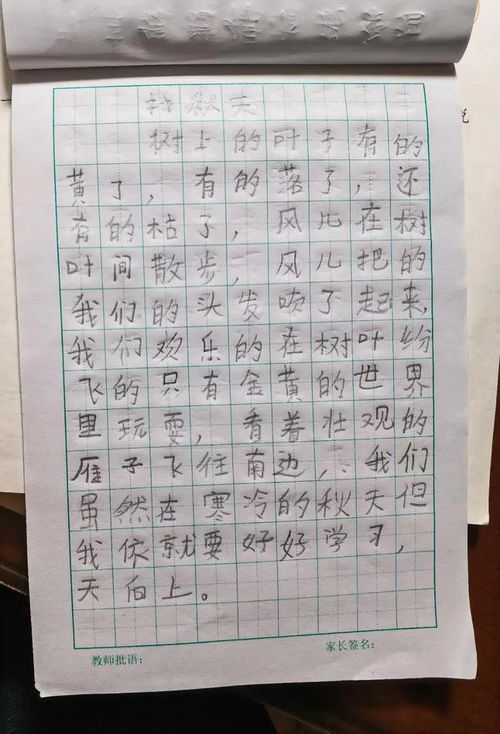 找秋天
树上的叶子有的
黄了，有的落了，还
有的枯了，风儿在树
叶间散步，风儿把的
我们的头发吹了起来，
我们欢乐的在树叶纷
飞的只有金黄的世界
里玩耍，看着壮观的
雁子飞往南边，我们
虽然在寒冷的秋天但
我依就要好好学习，
天向上。
教师批语：
家长签名：